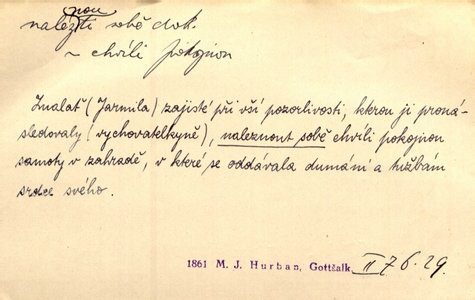 nou
nalezti sobě dok.
~ chvíli pokojnou
Znalať (Jarmila) zajisté při vší pozorlivosti, kterou ji proná-
sledovaly (vychovatelkyně), naleznout sobě chvíli pokojnou
samoty v zahradě, v které se oddávala dumání a tužbám
srdce svého.
1861 M. J. Hurban, Gottšalk II 76.29.